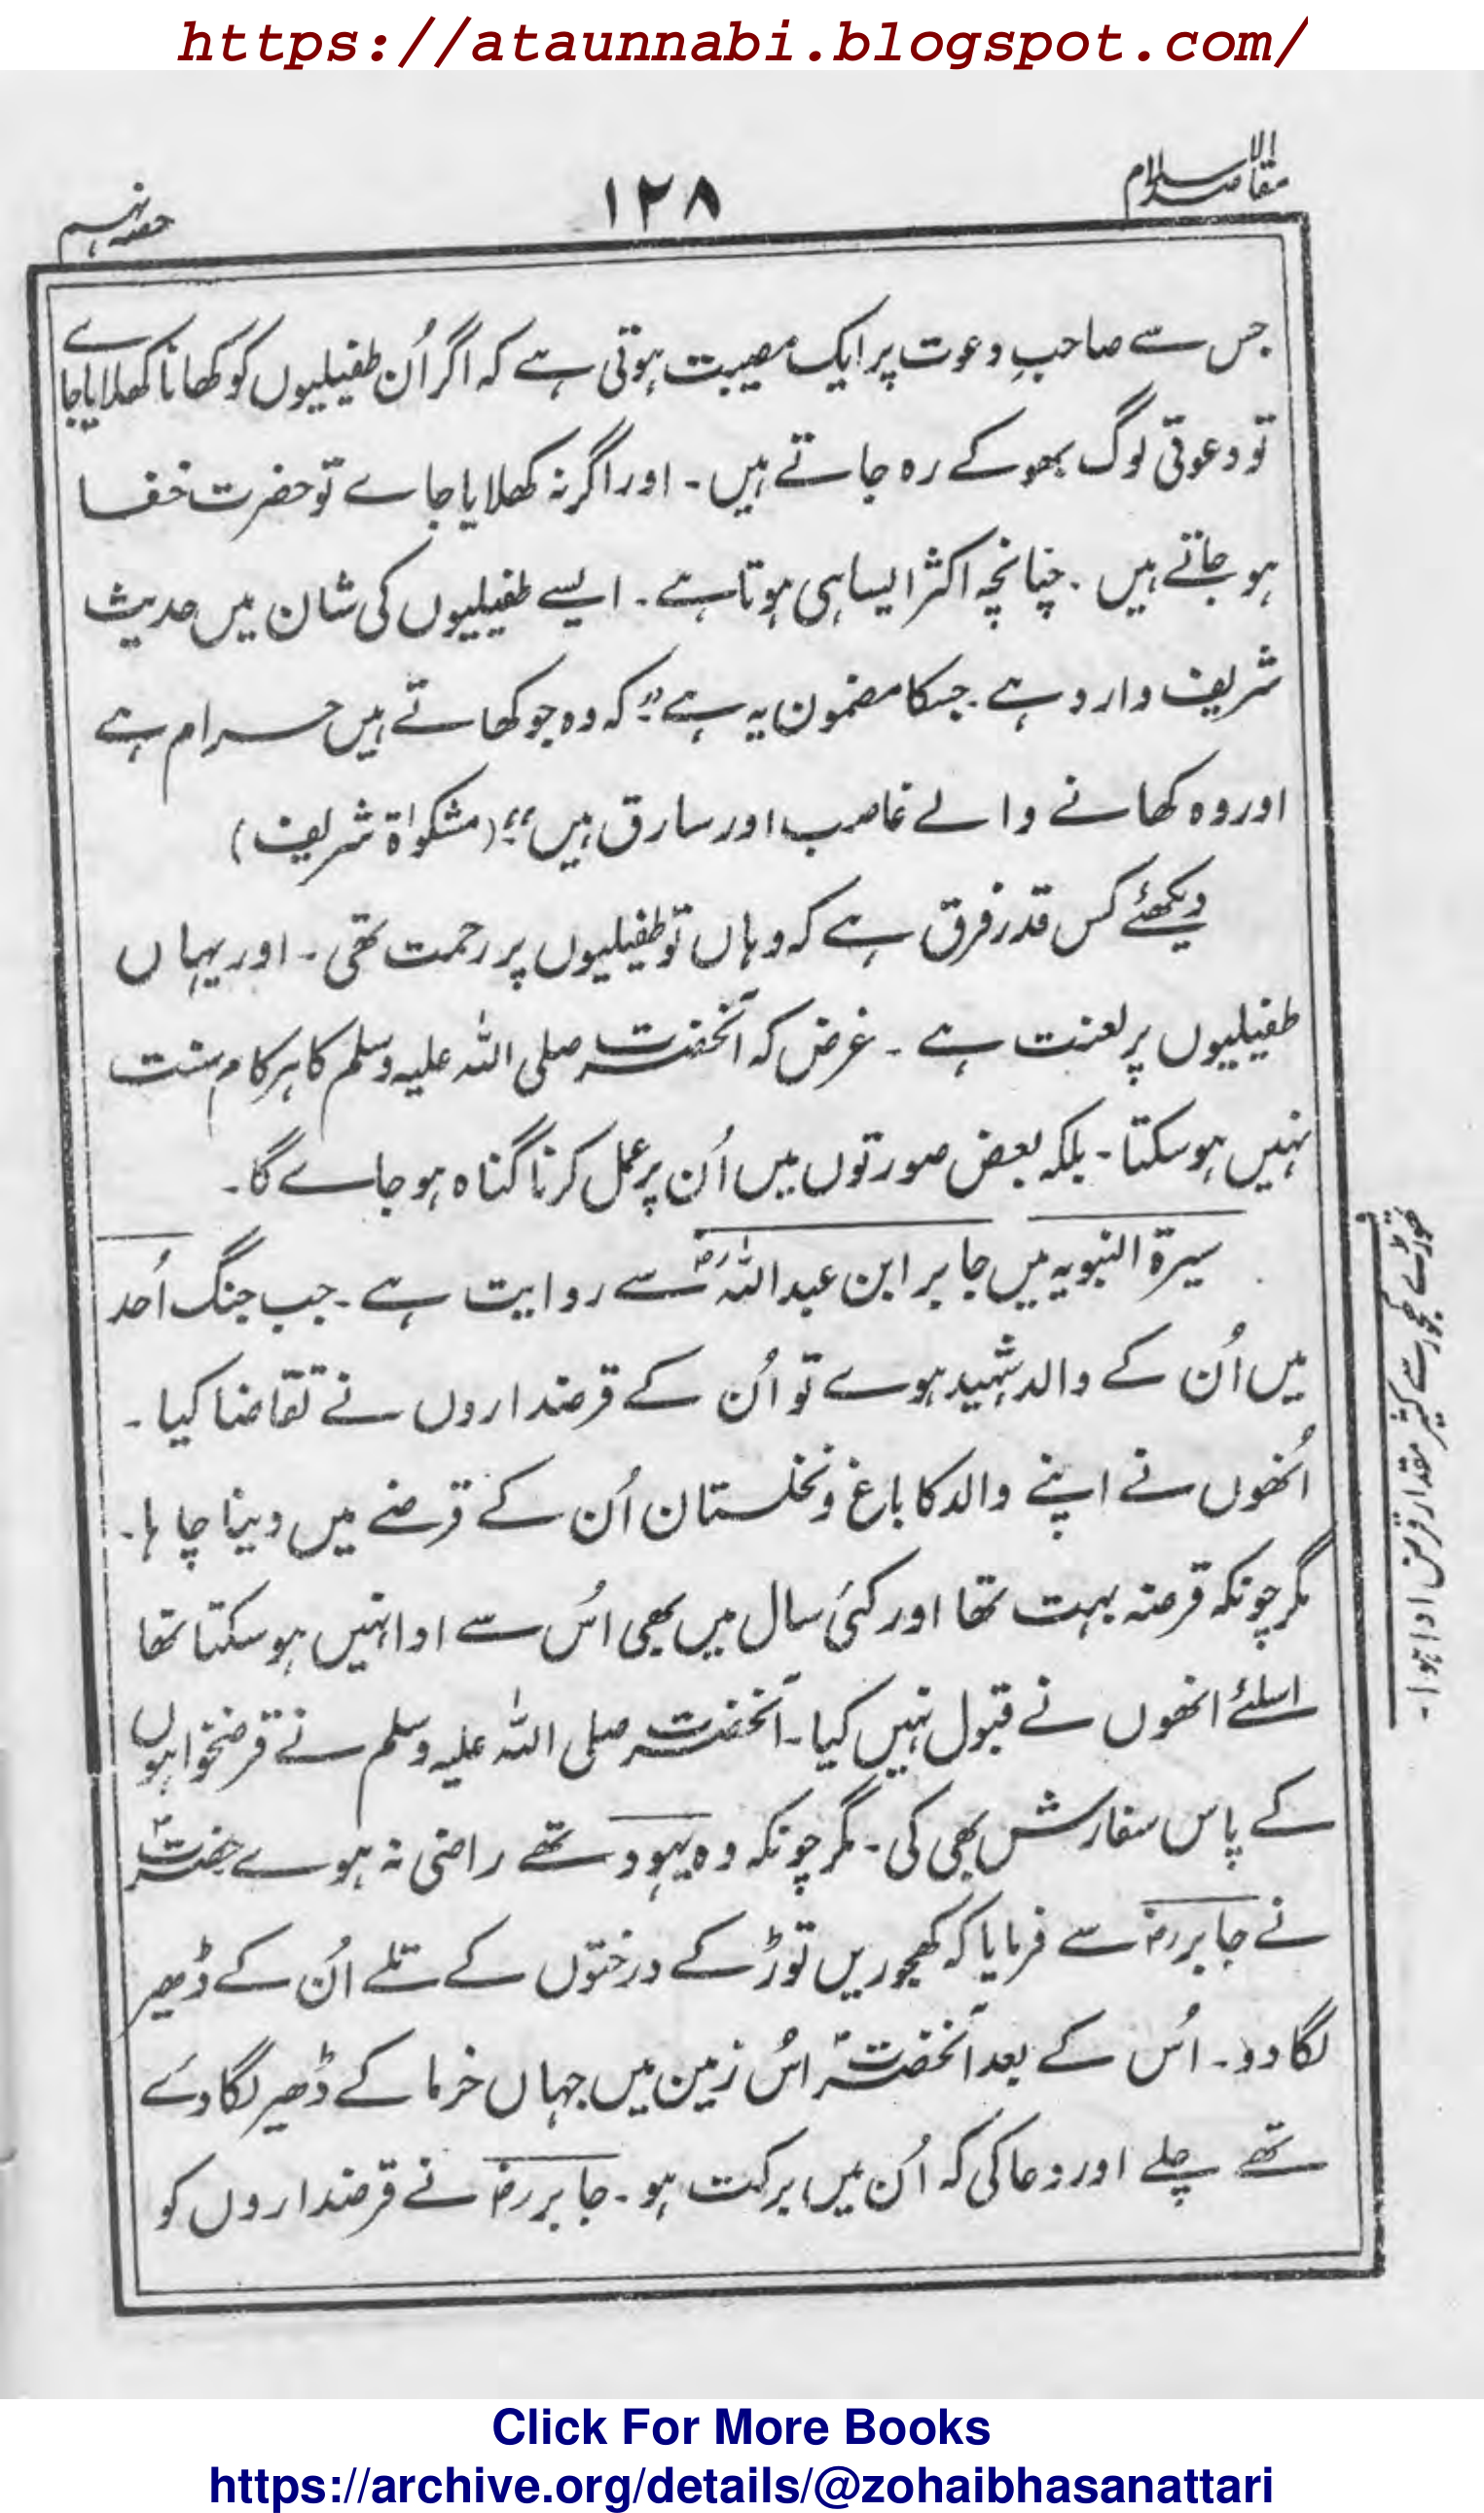 https://ataunnabi.blogspot.com/
مقاصد الاسلام
۱۲۸
حصہ نہم
جس سے صاحبِ دعوت پر ایک مصیبت ہوتی ہے کہ اگر اُن طفیلیوں کو کھانا کھلایا جاے
تو دعوتی لوگ بھوکے رہ جاتے ہیں۔ اور اگر نہ کھلایا جاے تو حضرت خفا
ہو جاتے ہیں۔ چنانچہ اکثر ایسا ہی ہوتا ہے۔ ایسے طفیلیوں کی شان میں حدیث
شریف وارد ہے۔ جسکا مضمون یہ ہے ”کہ وہ جو کھاتے ہیں حرام ہے
اور وہ کھانے والے غاصب اور سارق ہیں“ (مشکواۃ شریف)
دیکھئے کس قدر فرق ہے کہ وہاں تو طفیلیوں پر رحمت تھی۔ اور یہاں
طفیلیوں پر لعنت ہے۔ غرض کہ آنحضرت صلی اللہ علیہ وسلم کا ہر کام سنت
نہیں ہو سکتا۔ بلکہ بعض صورتوں میں اُن پر عمل کرنا گناہ ہو جاے گا۔
سیرۃ النبویہ میں جابر ابن عبد اللہؓ سے روایت ہے۔ جب جنگ اُحد
میں اُن کے والد شہید ہوے تو اُن کے قرضداروں نے تقاضا کیا۔
اُنھوں نے اپنے والد کا باغ و نخلستان اُن کے قرضے میں دینا چاہا۔
مگر چونکہ قرضہ بہت تھا اور کئی سال میں بھی اُس سے ادا نہیں ہو سکتا تھا
اسلئے انھوں نے قبول نہیں کیا۔ آنحضرت صلی اللہ علیہ وسلم نے قرضخواہوں
کے پاس سفارش بھی کی۔ مگر چونکہ وہ یہود تھے راضی نہ ہوے حضرتؐ
نے جابر رضؓ سے فرمایا کہ کھجوریں توڑ کے درختوں کے تلے اُن کے ڈھیر
لگا دو۔ اُس کے بعد آنحضرتؐ اُس زمین میں جہاں خرما کے ڈھیر لگا دئے
تھے چلے اور دعا کی کہ اُن میں برکت ہو۔ جابر رضؓ نے قرضداروں کو
تھوڑے کھجور سے کثیر مقدار قرض ادا ہوا۔
Click For More Books
https://archive.org/details/@zohaibhasanattari